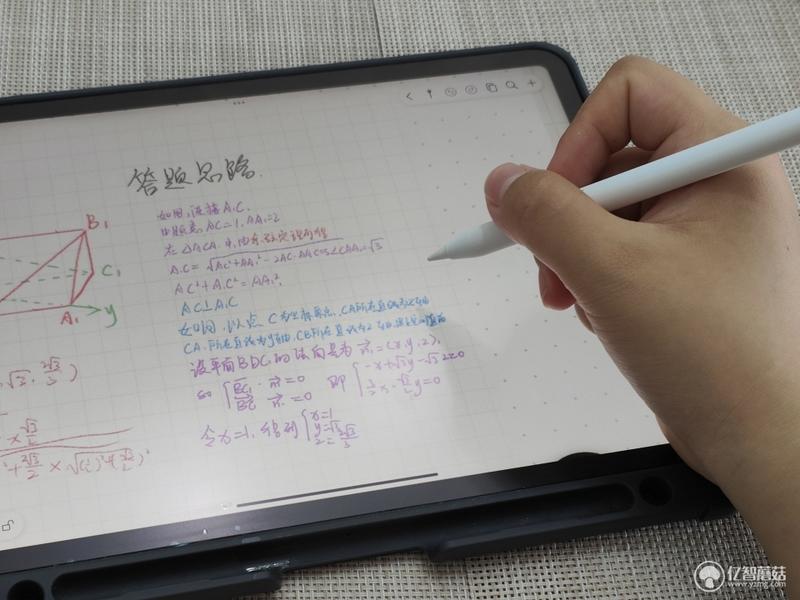 答题思路.
B₁
C₁
A₁
y
如图,连接A₁C.
由题意 AC=1, AA₁=2
在△ACA₁中,由余弦定理可得
A₁C=√AC²+AA₁²-2AC·AA₁COS∠CAA₁=√3
AC²+A₁C²=AA₁²,
AC⊥A₁C
如图,以点C为坐标原点,CA所在直线为x轴
CA₁所在直线为y轴,CB所在直线为z轴,
设平面BDC₁的法向量为 n=(x,y,z),
n=0
n=0
即
-x+√3y-√3z=0
y=0
令x=1,得到
x=1
y=√3
z=2√3/3
√3, 2√3/3)
×√3/2
2√3/2 ×
亿智蘑菇
www.yzmg.com